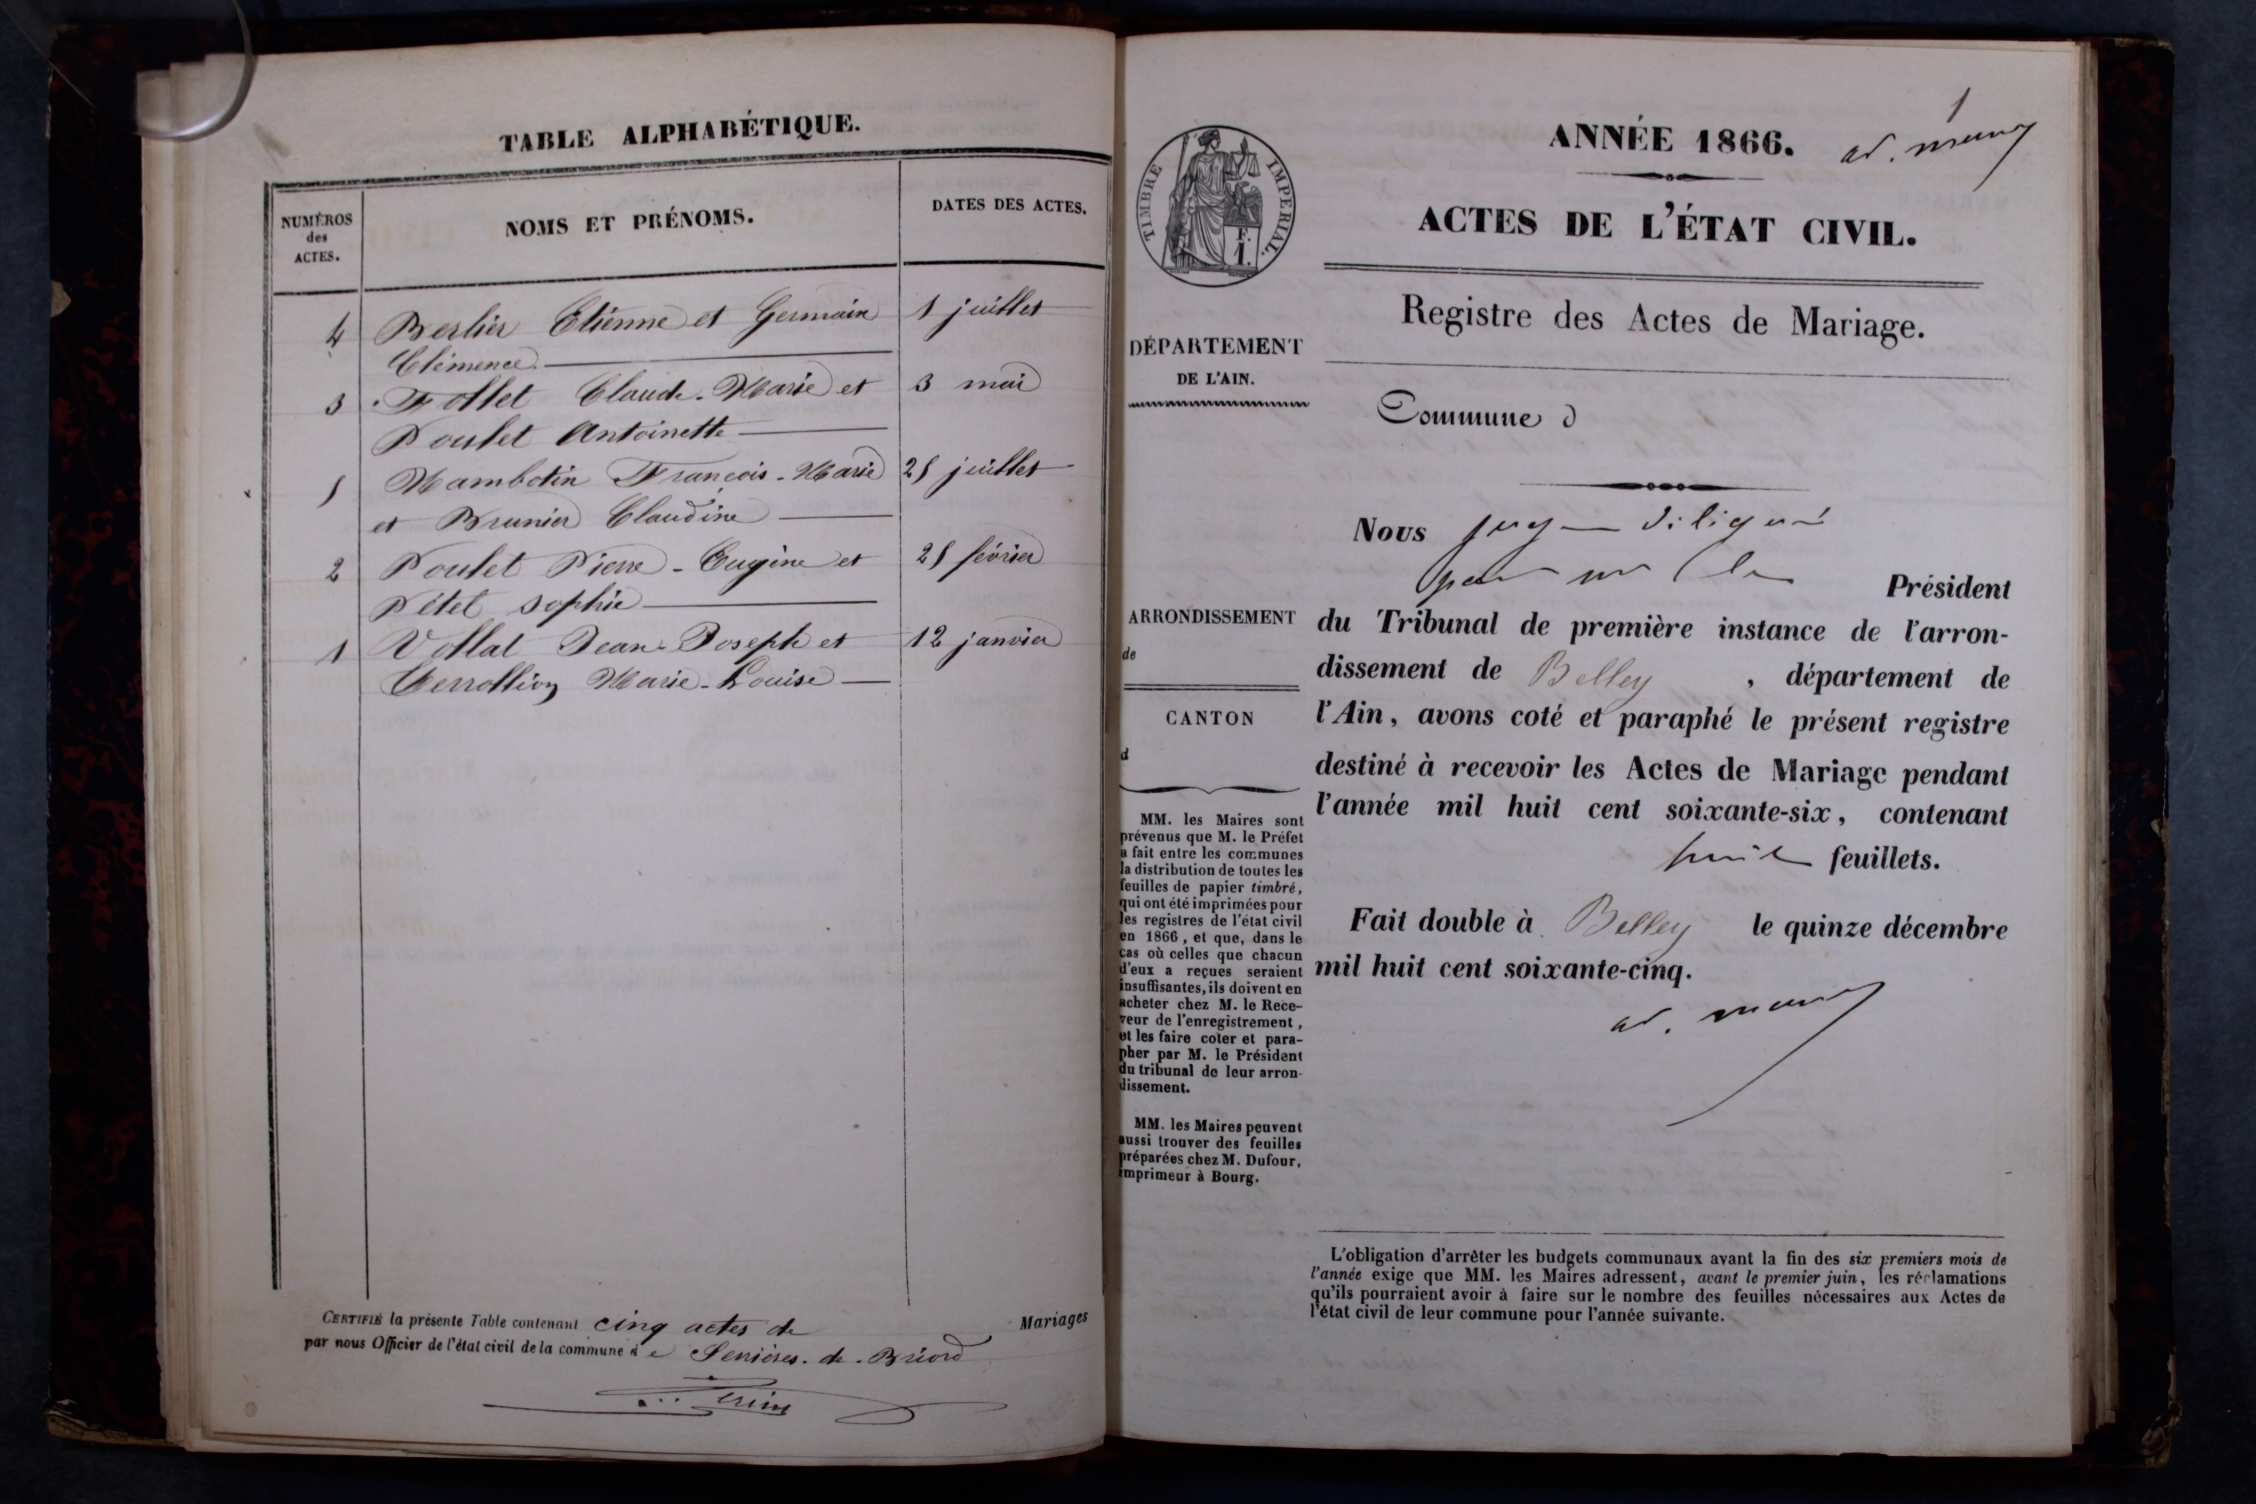 TABLE ALPHABÉTIQUE.
NUMÉROS
des
ACTES.
NOMS ET PRÉNOMS.
DATES DES ACTES.
4 Berlier Etienne et Germain 1 juillet
Clémence
3 Follet Claude-Marie et 3 mai
Poulet Antoinette
5 Mambotin François-Marie 25 juillet
et Brunier Claudine
2 Poulet Pierre-Eugène et 25 février
Pétel Sophie
1 Vollat Jean-Joseph et 12 janvier
Marie-Louise
CERTIFIÉ la présente Table contenant cinq actes de Mariages
par nous Officier de l'état civil de la commune de Serrières-de-Briord
TIMBRE IMPERIAL.
F.
1.
DÉPARTEMENT
DE L'AIN.
ARRONDISSEMENT
de
CANTON
d
MM. les Maires sont
prévenus que M. le Préfet
a fait entre les communes
la distribution de toutes les
feuilles de papier timbré,
qui ont été imprimées pour
les registres de l'état civil
en 1866, et que, dans le
cas où celles que chacun
d'eux a reçues seraient
insuffisantes, ils doivent en
acheter chez M. le Rece-
veur de l'enregistrement,
et les faire coter et para-
pher par M. le Président
du tribunal de leur arron-
dissement.
MM. les Maires peuvent
aussi trouver des feuilles
préparées chez M. Dufour,
imprimeur à Bourg.
1
ANNÉE 1866.
ACTES DE L'ÉTAT CIVIL.
Registre des Actes de Mariage.
Commune d
Nous juge délégué
par M le Président
du Tribunal de première instance de l'arron-
dissement de Belley, département de
l'Ain, avons coté et paraphé le présent registre
destiné à recevoir les Actes de Mariage pendant
l'année mil huit cent soixante-six, contenant
huit feuillets.
Fait double à Belley le quinze décembre
mil huit cent soixante-cinq.
L'obligation d'arrêter les budgets communaux avant la fin des six premiers mois de
l'année exige que MM. les Maires adressent, avant le premier juin, les réclamations
qu'ils pourraient avoir à faire sur le nombre des feuilles nécessaires aux Actes de
l'état civil de leur commune pour l'année suivante.